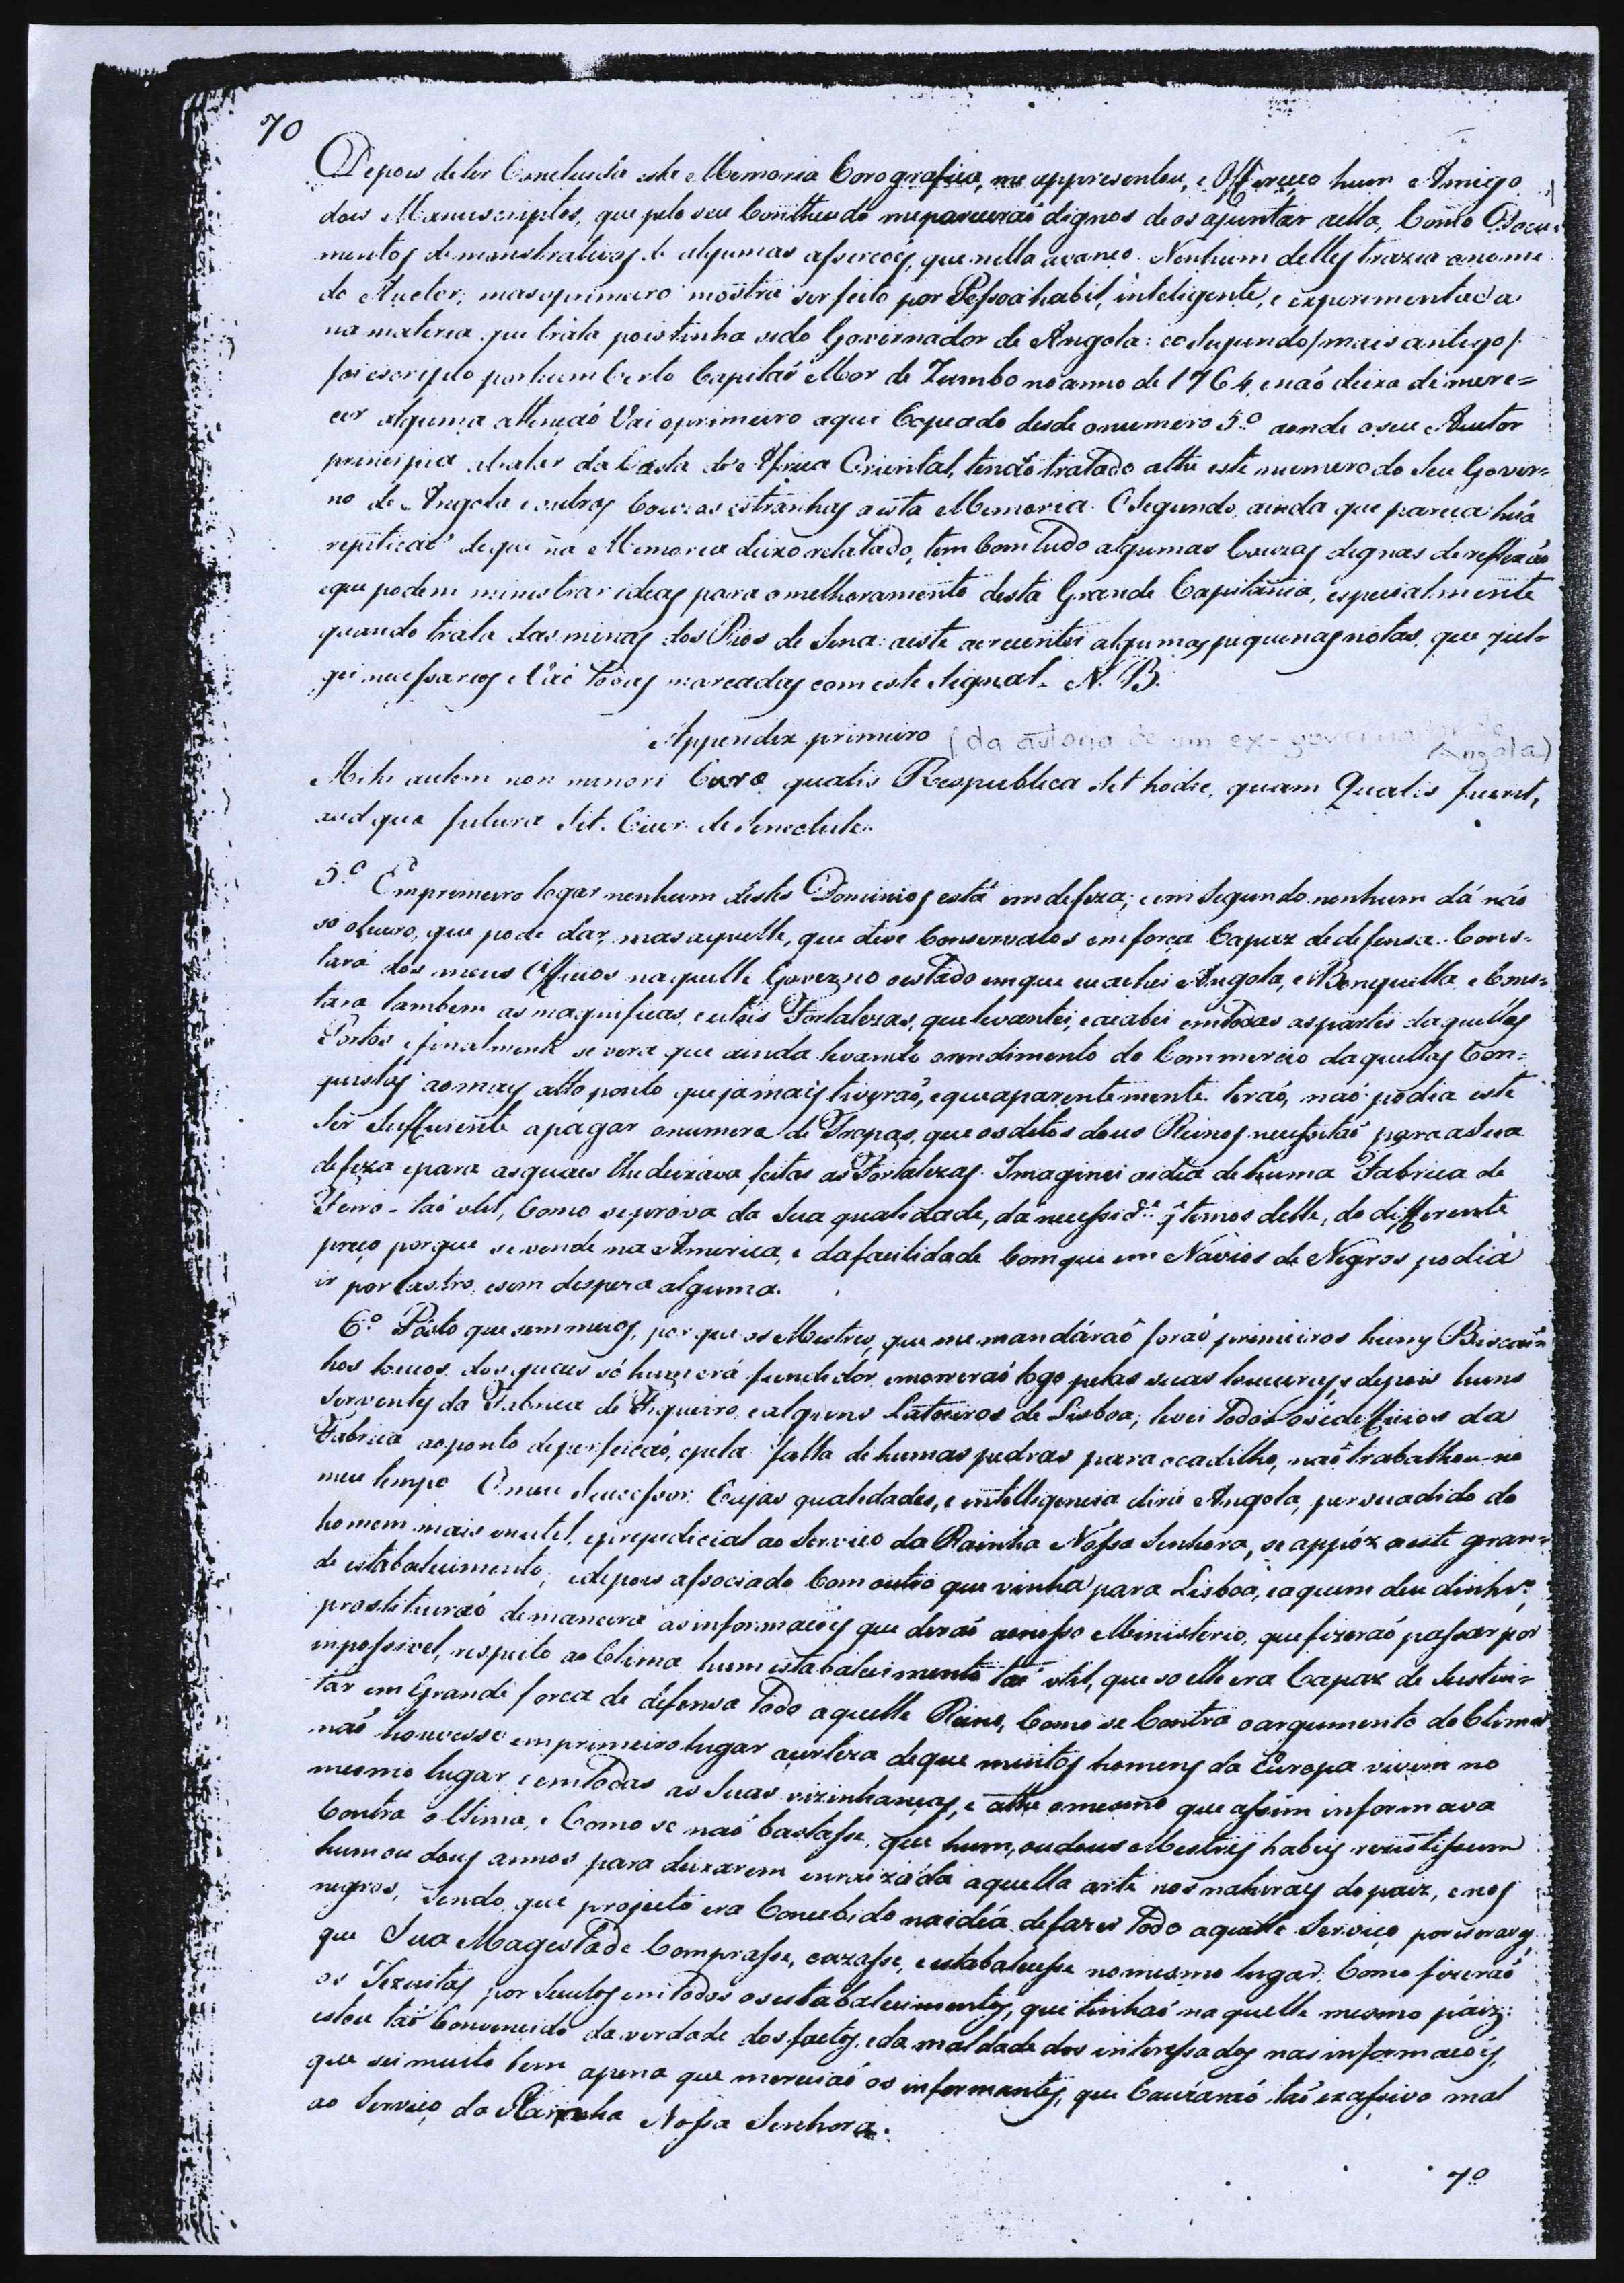 70
Depois de ter Concluida esta Memoria Corografica, me appresentou, e Offereceo hum Amigo
dois Manuscriptos, que pelo seu Contheudo me parecerão dignos de os ajuntar a ella, Como Docu-
mentos demonstrativos de algumas asserçoẽs, que nella avanço. Nenhum delles trazia o nome
do Auctor; mas o primeiro mostra ser feito por Pessoa habil, inteligente, e experimentada
na materia que trata pois tinha sido Governador de Angola: e o Segundo /mais antigo/
foi escripto por hum Certo Capitaó Mor de Zumbo no anno de 1764, e naó deixa de mere=
cer alguma attençaó Vai o primeiro aqui Copeado desde o numero 5º aonde o seu Auctor
principia a tratar da Costa de Africa Oriental, tendo tratado athe este numero do Seu Gover=
no de Angola e outras Couzas estranhas a esta Memoria. O Segundo, ainda que pareça húa
repitiçaó de que na Memoria deixo relatado, tem Com tudo algumas Couzas dignas de reflexaó
e que podem ministrar ideas para o melhoramento desta Grande Capitania, especialmente
quando trata das minas dos Rios de Sena: a este acrecentei algumas piquenas notas, que jul-
gei necessarias e Vaó todas marcadas com este Signal. N. B.
Appendix primeiro (da autoria de um ex-governador de
Angola)
Mihi autem non minori Curæ, qualis Respublica Sit hodie, quam Qualis fuerit,
aut que futura Sit. Cicer. de Senectute.
5.º Em primeiro logar nenhum destes Dominios está em defeza; e em Segundo nenhum dá não
só o lucro, que pode dar, mas aquelle, que deve Conservalos em força Capaz de defensa. Cons-
tará dos meus Officios naquelle Governo o estado em que eu achei Angola, e Benguella, e Cons-
tara tambem as magnificas, e uteis Fortalezas, que levantei, e acabei em todas as partes daquelles
Portos e finalmente se vera que ainda levando o rendimento do Commercio daquellas Con=
quistas ao mais alto ponto que jamais tiverão, e que aparentemente teraó, naó podia este
Ser Sufficiente a pagar o numero de Tropas, que os ditos dous Reinos necessitaó para a Sua
defeza e para as quaes lhe deixava feitas as Fortalezas. Imaginei a idea de huma Fabrica de
Ferro - taó util, Como se prova da Sua qualidade, da necessid.e q̃ temos delle, do differente
preço porque se vende na America, e da facilidade Com que em Návios de Negros podia
ir por lastro, e sem despeza alguma.
6.º Posto que sem meios, por que os Mestres, que me mandáraõ foraó primeiros huns Biscai=
hos loucos dos quaes só hum erá fundidor e morreraó logo pelas suas loucuras, e depois huns
Serventes da Fabrica de Figueiro, e alguns Latoeiros de Lisboa; levei todos os idefficios da
Fabrica ao ponto de perfeiçaó, e pela falta de humas pedras para o cadilho, naó trabalhou no
meu tempo O meu Sucessor, Cujas qualidades, e intelligencia dirá Angola, persuadido do
homem mais inutel, e prejudicial ao Serviço da Rainha Nossa Senhora, se appóz a este gran=
de estabalecimento; e depois associado Com outro que vinha para Lisboa, e a quem deu dinhr.º,
prostituiraó de maneira as informaçoẽs que deraó ao nosso Ministerio, que fizeraó passar por
impossivel, respeito ao Clima hum estabalecimento taó util, que so elle era Capaz de Susten=
tár em Grande força de defensa todo aquelle Reino, Como se Contra o argumento do Clima
naó houvesse em primeiro lugar a certeza de que muitos homens da Europa vivem no
mesmo lugar, e em todas as Suas vizinhanças, e athe o mesmo que assim informava
Contra o Clima, e Como se naó bastasse, que hum, ou dous Mestres habeis rezistissem
hum ou dous annos para deixarem enraizada aquella arte nos naturaes do paiz, e nos
negros, Sendo, que projecto era Concebido na idéa de fazer todo aquelle Serviço por escravos,
que Sua Magestade Comprasse, cazasse, e estabalecesse no mesmo lugar, Como fizeraó
os Jezuitas por Seculos em todos os estabalecimentos, que tinhaó naquelle mesmo páiz:
estou taó Convencido da verdade dos factos, e da maldade dos interessados nas informaçoẽs,
que sei muito bem a pena que mereciaó os informantes, que Cauzaraó taó excessivo mal
ao Serviço da Rainha Nossa Senhora.
7º